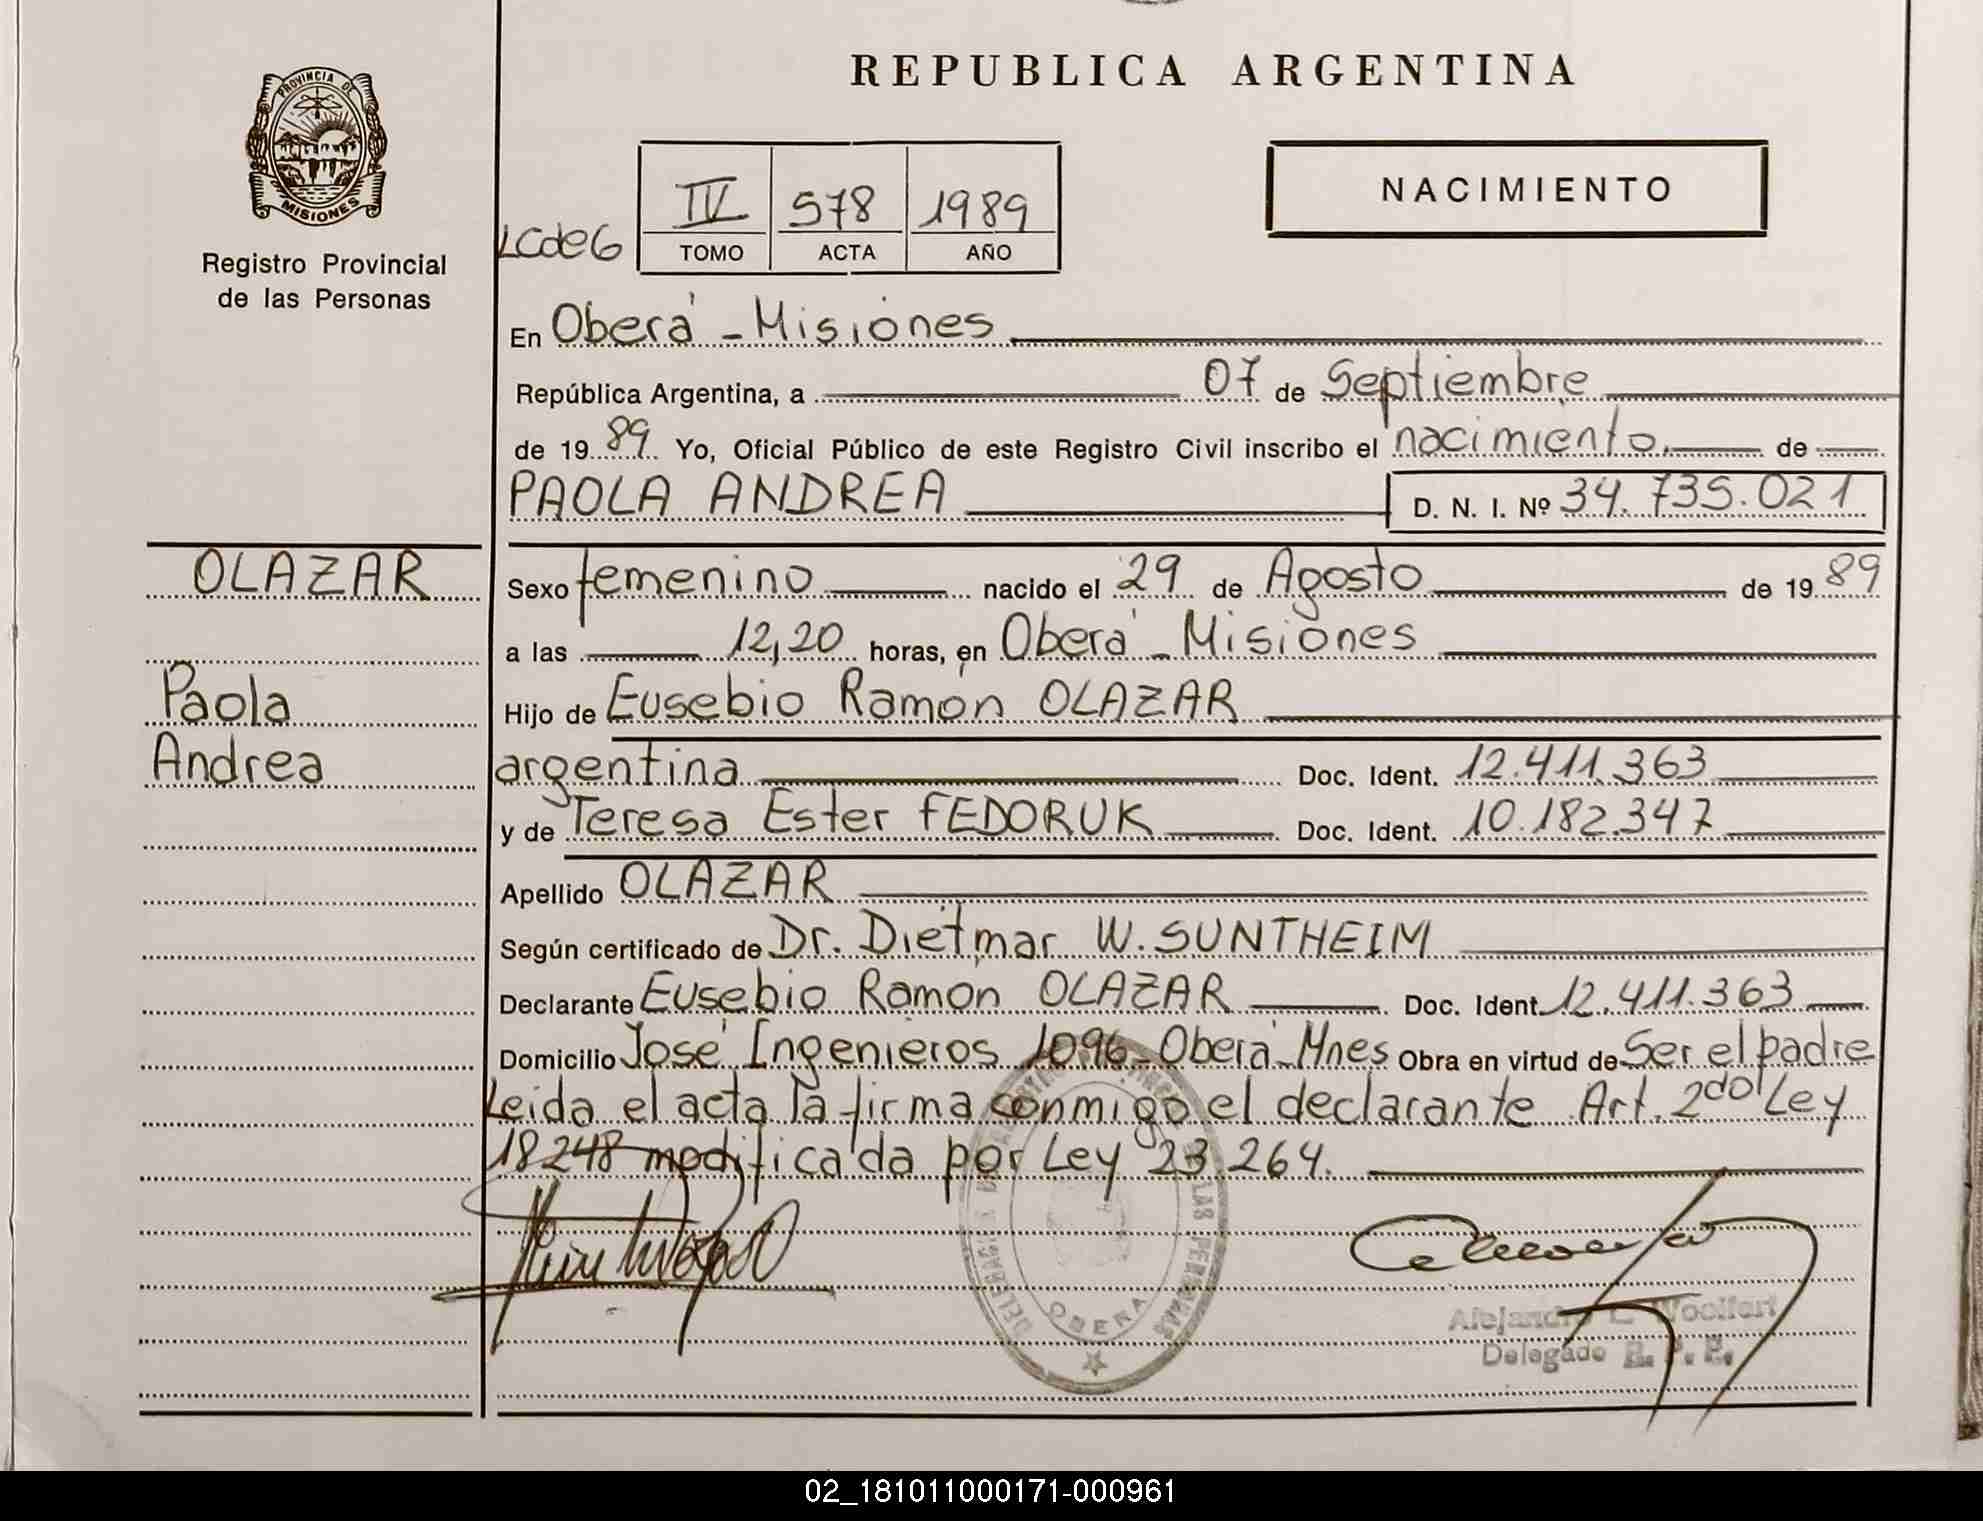 REPUBLICA ARGENTINA
PROVINCIA DE
MISIONES
Registro Provincial
de las Personas
LCdeG
IV 578 1989
TOMO ACTA AÑO
NACIMIENTO
En Oberá - Misiones
República Argentina, a 07 de Septiembre
de 1989 Yo, Oficial Público de este Registro Civil inscribo el nacimiento de
PAOLA ANDREA D. N. I. Nº 34.735.021
OLAZAR
Paola
Andrea
Sexo femenino nacido el 29 de Agosto de 1989
a las 12,20 horas, en Oberá - Misiones
Hijo de Eusebio Ramón OLAZAR
argentina Doc. Ident. 12.411.363
y de Teresa Ester FEDORUK Doc. Ident. 10.182.347
Apellido OLAZAR
Según certificado de Dr. Dietmar W. SUNTHEIM
Declarante Eusebio Ramón OLAZAR Doc. Ident. 12.411.363
Domicilio José Ingenieros 1096 - Oberá - Mnes Obra en virtud de Ser el padre
Leida el acta la firma conmigo el declarante Art. 2do Ley
18248 modificada por Ley 23.264.
LAS PERSONAS
OBERA
Alejandro L. Woolfert
Delegado R. P. P.
02_181011000171-000961